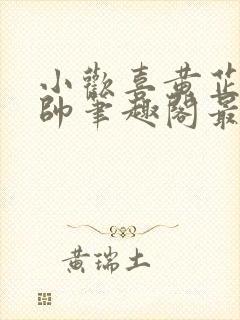 小歡喜黃芷
帥筆趣閣最
黃瑞土